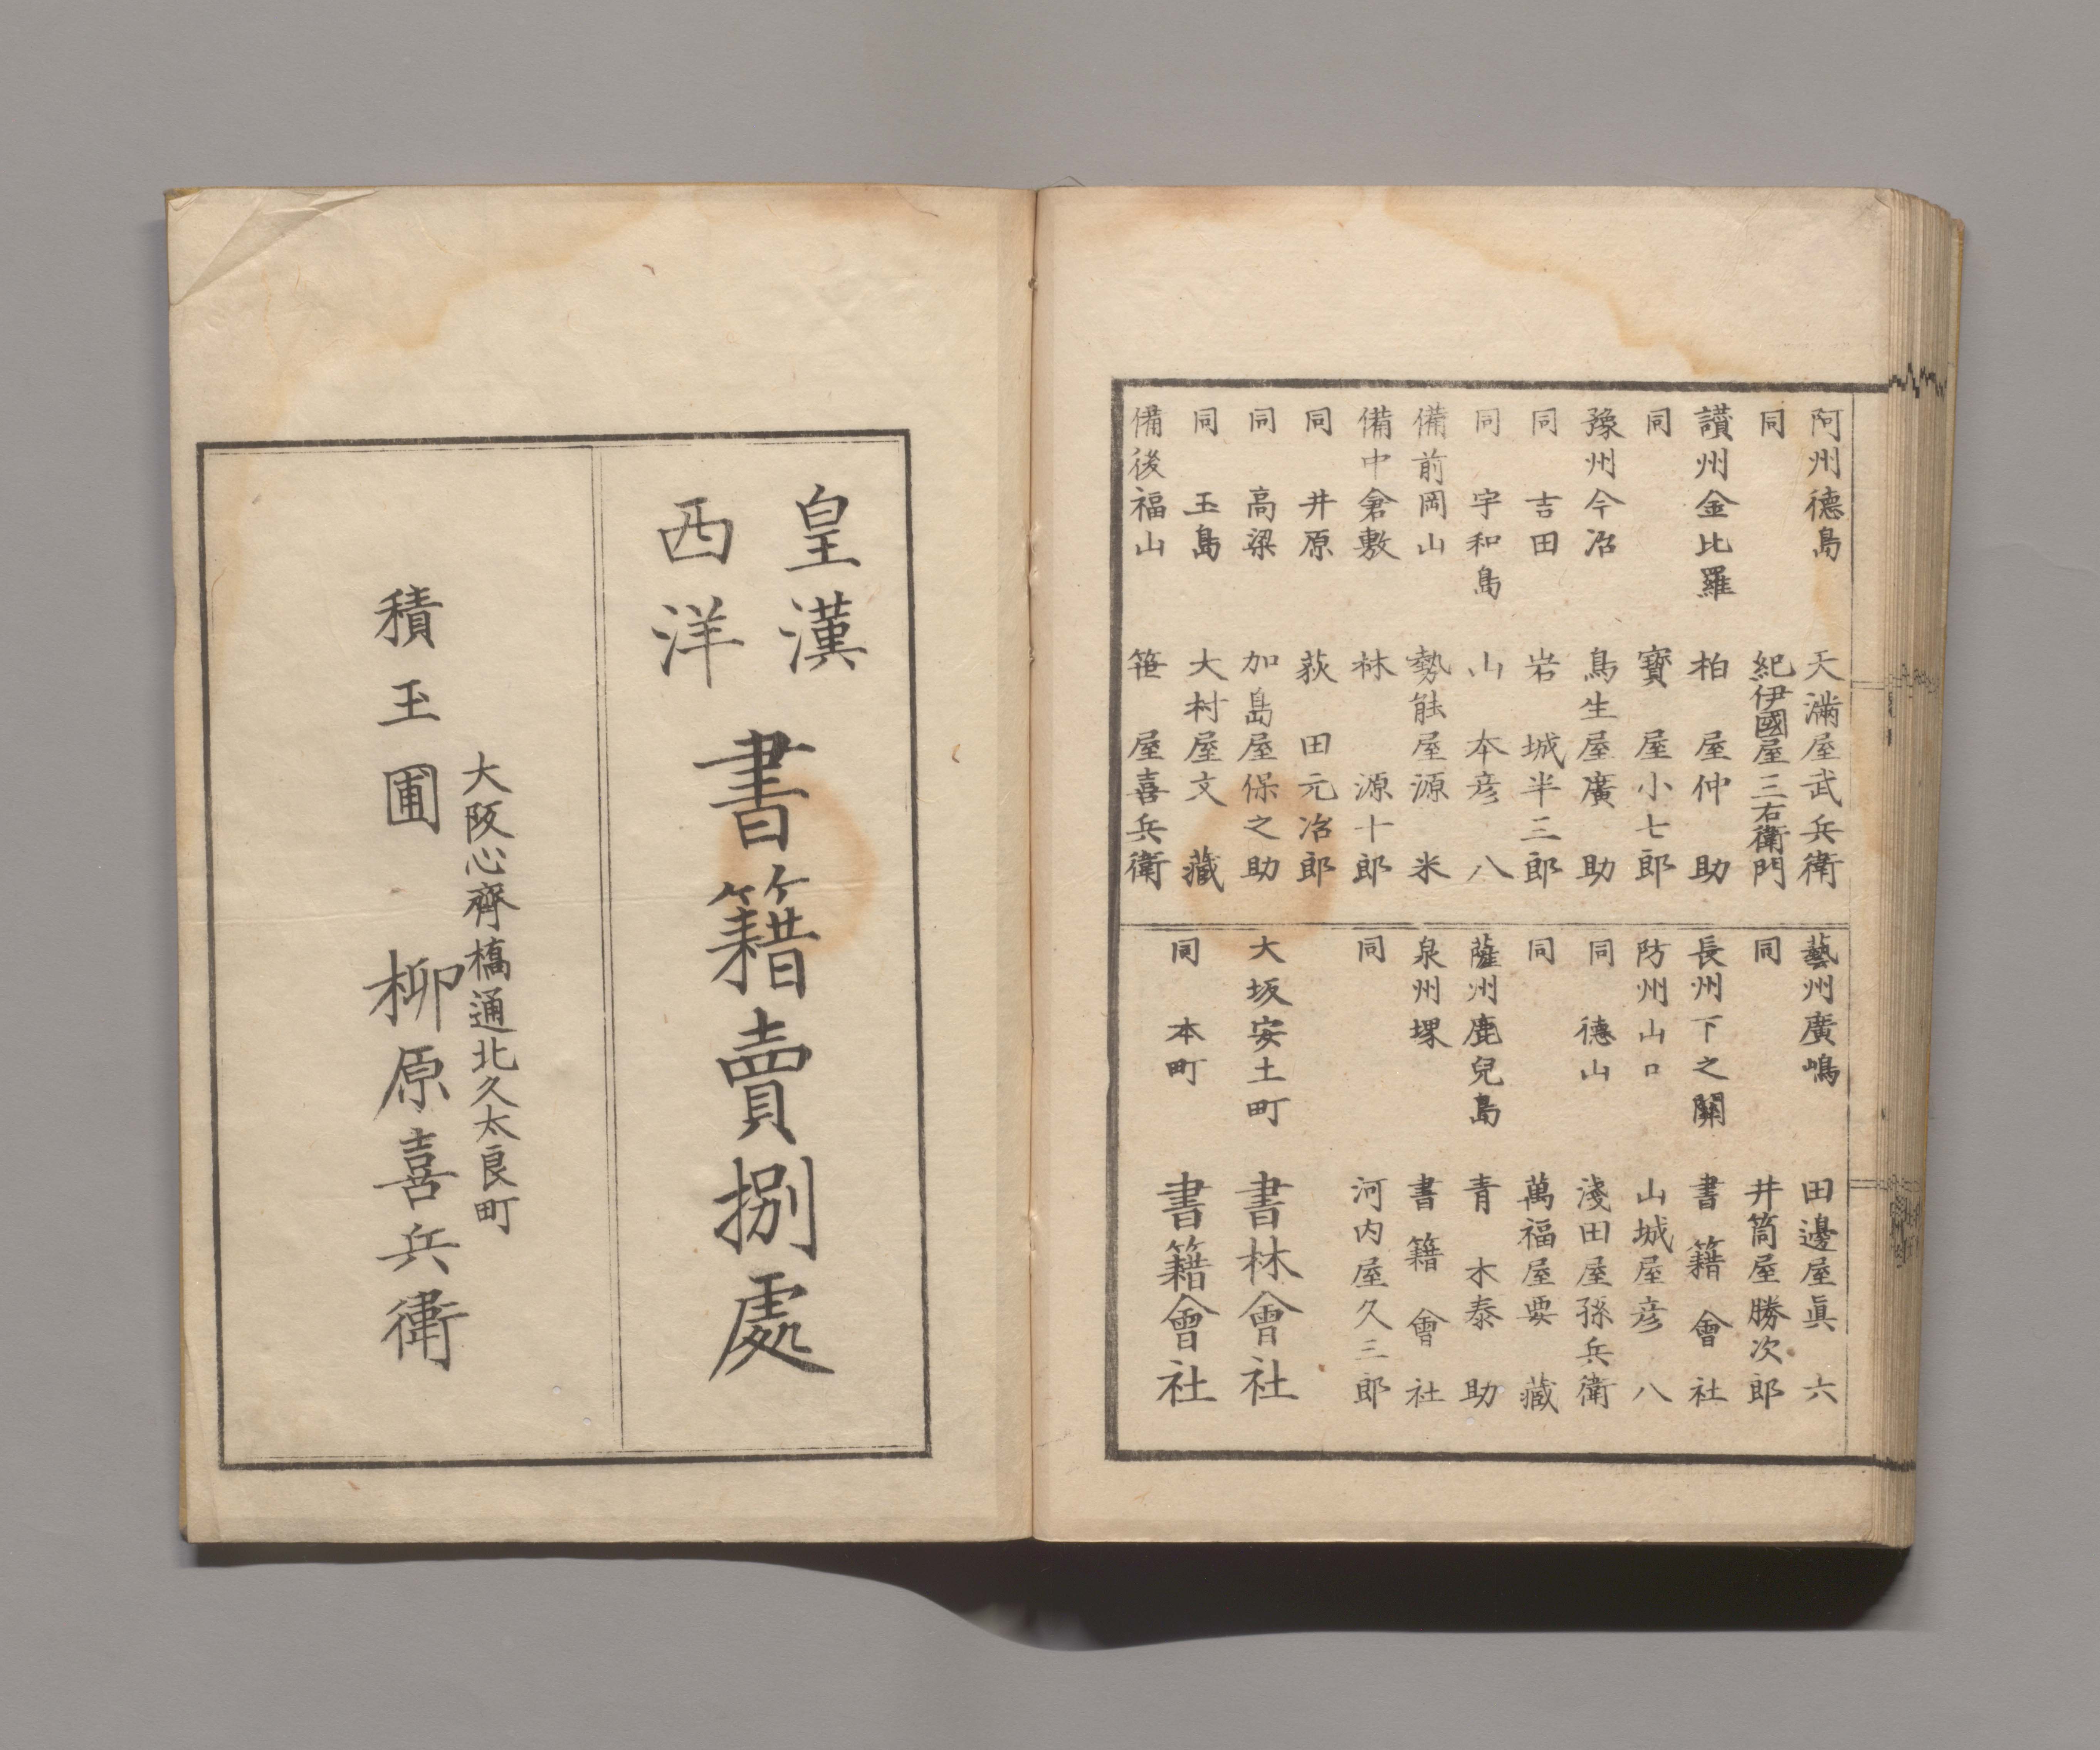 阿州德島　天滿屋武兵衛
同　紀伊國屋三右衛門
讃州金比羅　柏屋仲助
同　寶屋小七郎
豫州今治　鳥生屋廣助
同　吉田　岩城半三郎
同　宇和島　山本彦八
備前岡山　勢能屋源米
備中倉敷　林源十郎
同　井原　荻田元治郎
同　高梁　加島屋保之助
同　玉島　大村屋文藏
備後福山　笹屋喜兵衛
藝州廣嶋　田邊屋眞六
同　井筒屋勝次郎
長州下之關　書籍會社
防州山口　山城屋彦八
同　德山　淺田屋孫兵衛
同　萬福屋要藏
薩州鹿兒島　青木泰助
泉州堺　書籍會社
同　河内屋久三郎
大坂安土町　書林會社
同　本町　書籍會社
皇漢
西洋
書籍賣捌處
大阪心齊橋通北久太良町
積玉圃　柳原喜兵衛